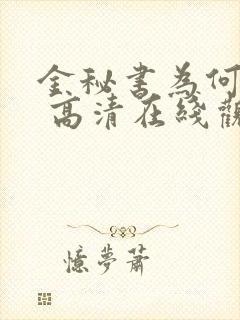 金秘书為何
高清在綫觀
憶夢蕭